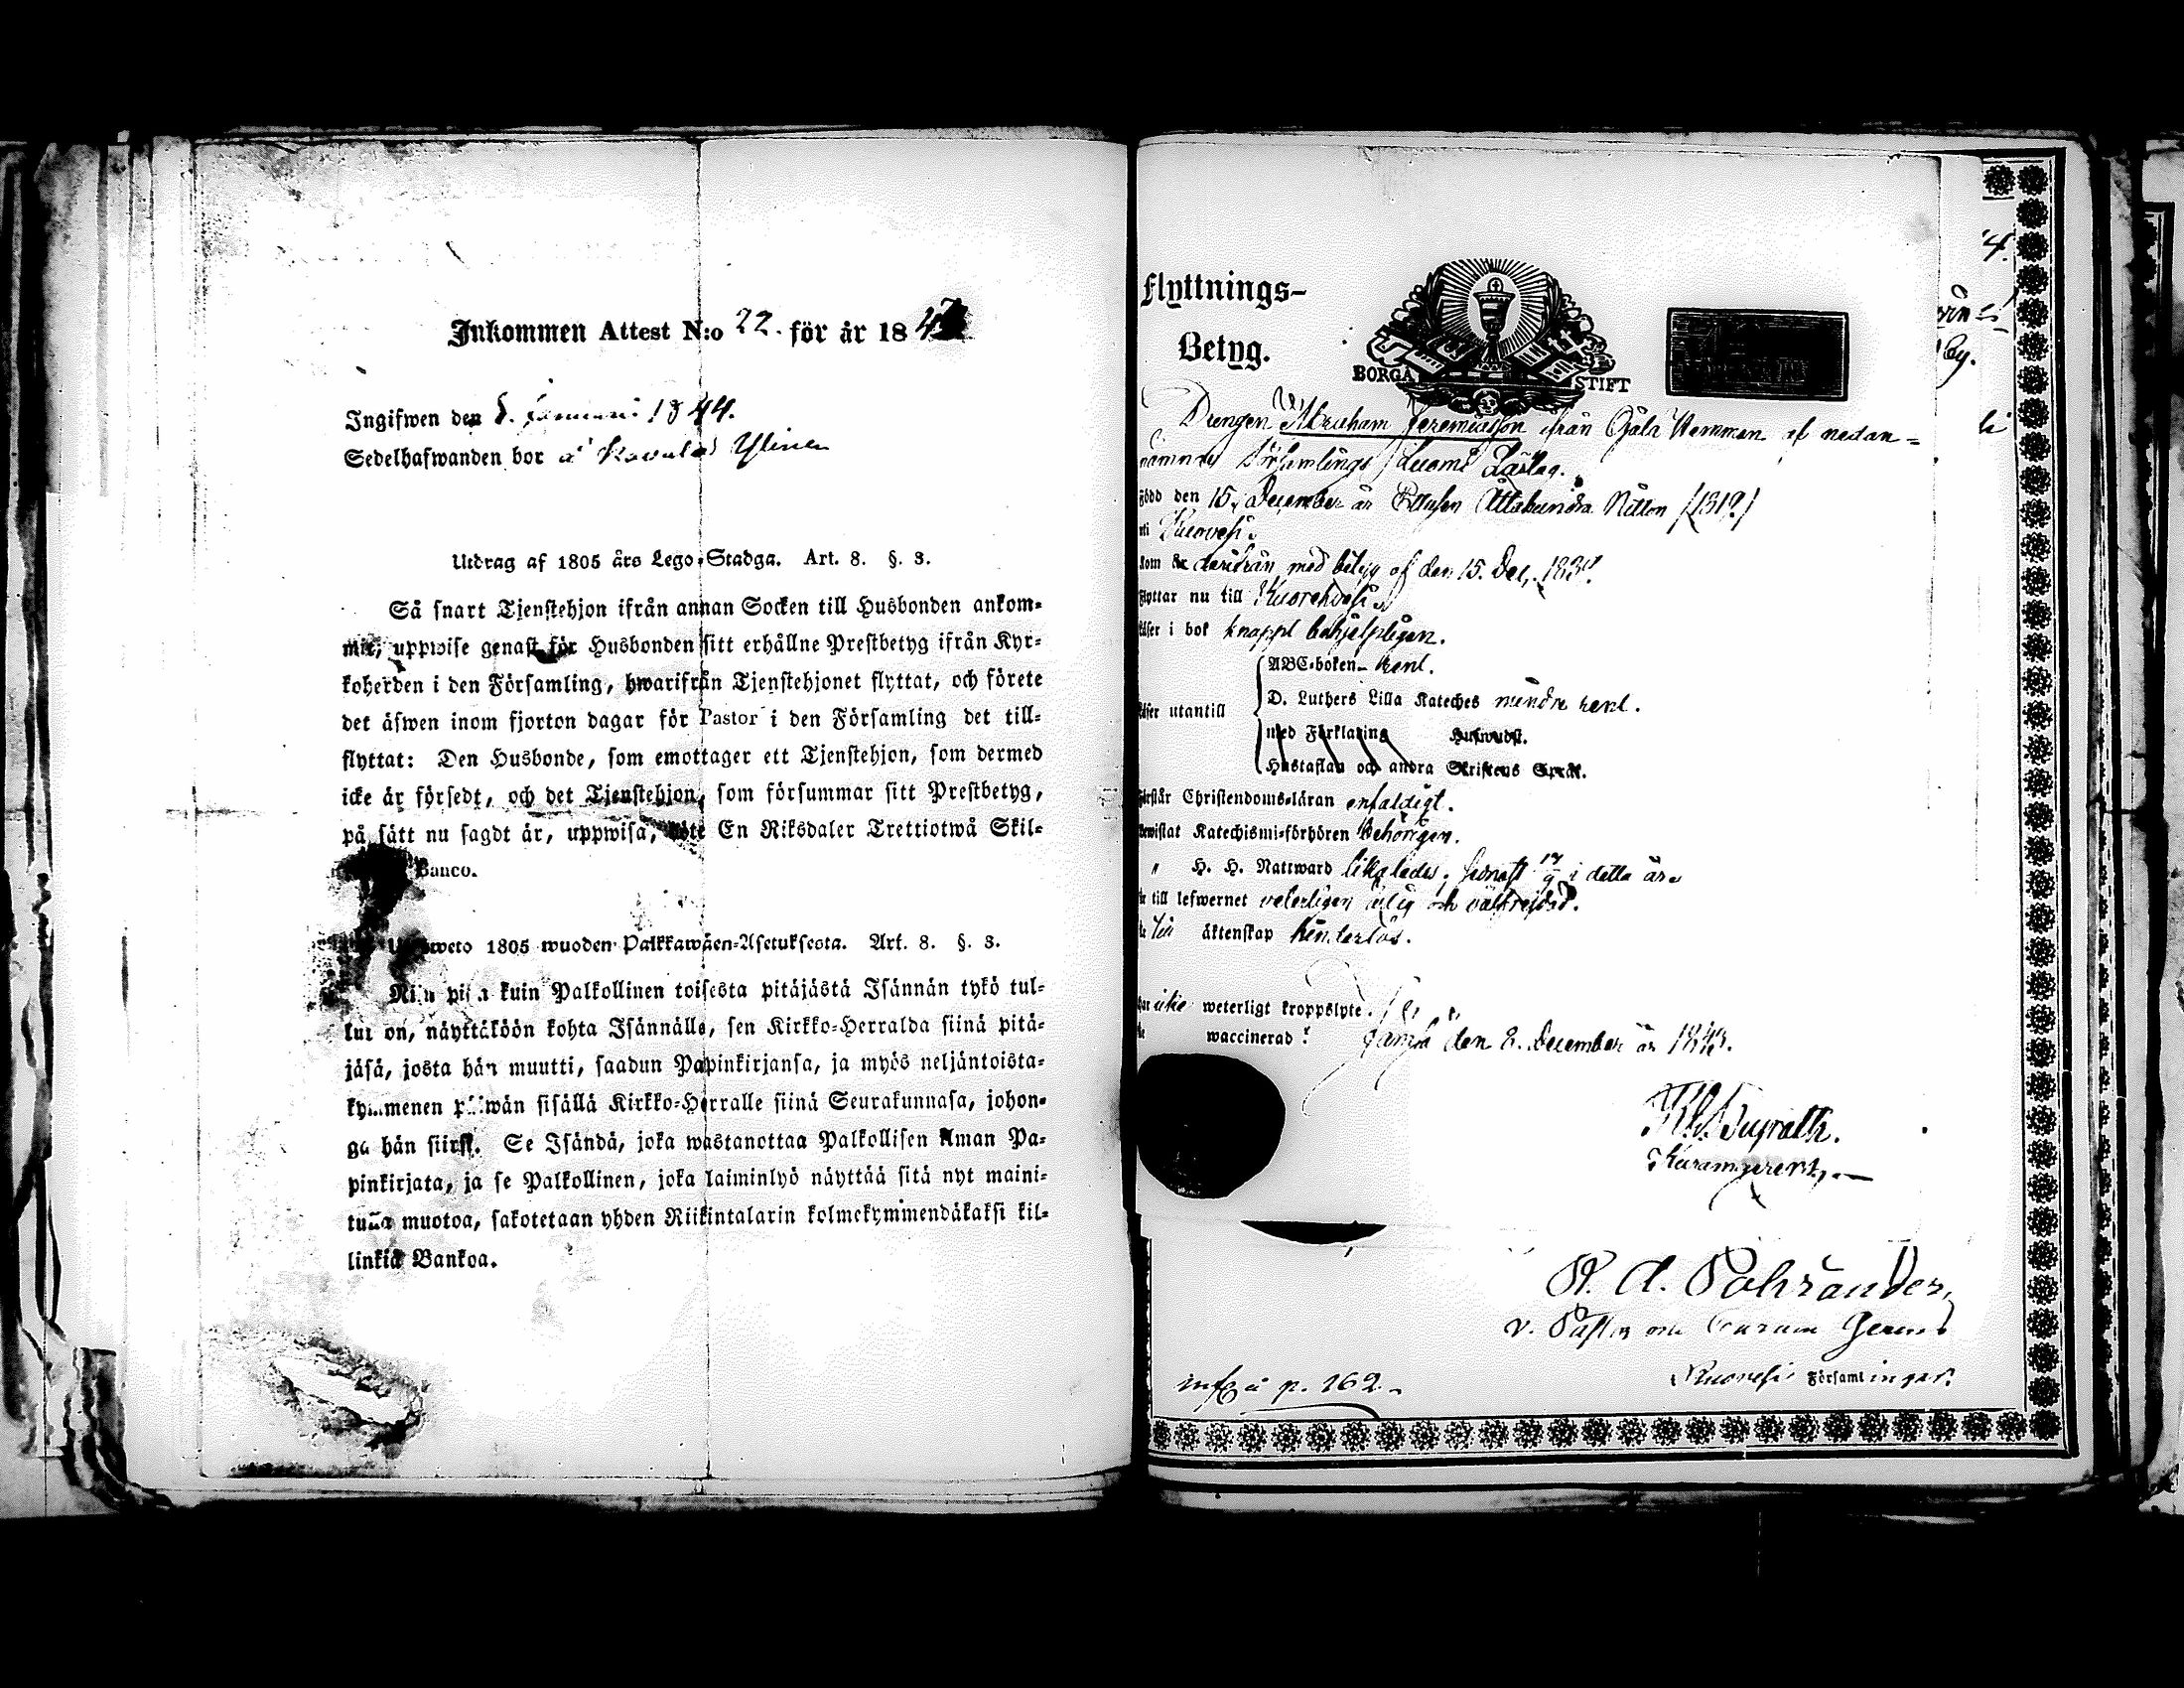 Inkommen Attest N:o 22. för år 184
Ingifwen den 8. Januari 1844.
Sedelhafwanden bor å Ylinen
Utdrag af 1805 års Lego-Stadga. Art. 8. §. 3.
Så snart Tjenstehjon ifrån annan Socken till Husbonden ankom-
mit, uppwise genast för Husbonden sitt erhållne Prestbetyg ifrån Kyr-
koherden i den Församling, hwarifrån Tjenstehjonet flyttat, och förete
det äfwen inom fjorton dagar för Pastor i den Församling det till-
flyttat: Den Husbonde, som emottager ett Tjenstehjon, som dermed
icke är försedt, och det Tjenstehjon, som försummar sitt Prestbetyg,
på sätt nu sagdt är, uppwisa, böte En Riksdaler Trettiotwå Skil-
Banco.
1805 wuoden Palkkawäen-Asetuksesta. Art. 8. §. 3.
Niin pian kuin Palkollinen toisesta pitäjästä Isännän tykö tul-
lut on, näyttäköön kohta Isännälle, sen Kirkko-Herralda siinä pitä-
jäsä, josta hän muutti, saadun Papinkirjansa, ja myös neljäntoista-
kymmenen päiwän sisällä Kirkko-Herralle siinä Seurakunnasa, johon-
ga hän siirst. Se Isändä, joka wastanottaa Palkollisen ilman Pa-
pinkirjata, ja se Palkollinen, joka laiminlyö näyttää sitä nyt maini-
tulla muotoa, sakotetaan yhden Riikintalarin kolmekymmendäkaksi kil-
linkiä Bankoa.
Flyttnings-
Betyg.
BORGÅ STIFT
Drengen Abraham Jeremiasson ifrån Gåla Hemman af nedan-
nämnde Församlings Luomi Lästag.
Född den 15. December år Ettusen Åttahundra Nitton (1819)
Ruovesi.
kom derifrån med betyg af den 15. Dec. 183
flyttar nu till Kuorehvesi
läser i bok knappt behjelpligen.
ABC-boken rent.
D. Luthers Lilla Kateches mindre rent.
läser utantill
med Förklaring Hufwudst.
Hustaflan och andra Skriftens Språk.
förstår Christendoms-läran enfaldigt.
bewistat Katechismi-förhören behörigen.
" H. H. Nattward likaledes, senast i detta år.
till lefwernet veterligen ärlig och välfrejdad.
till äktenskap hinderlös.
har icke weterligt kroppslyte.
waccinerad. Jämsä den 8. December år 1843.
R. A. Pohrander,
v. Pastor
Ruovesi Församlingar.
infq å p. 162.